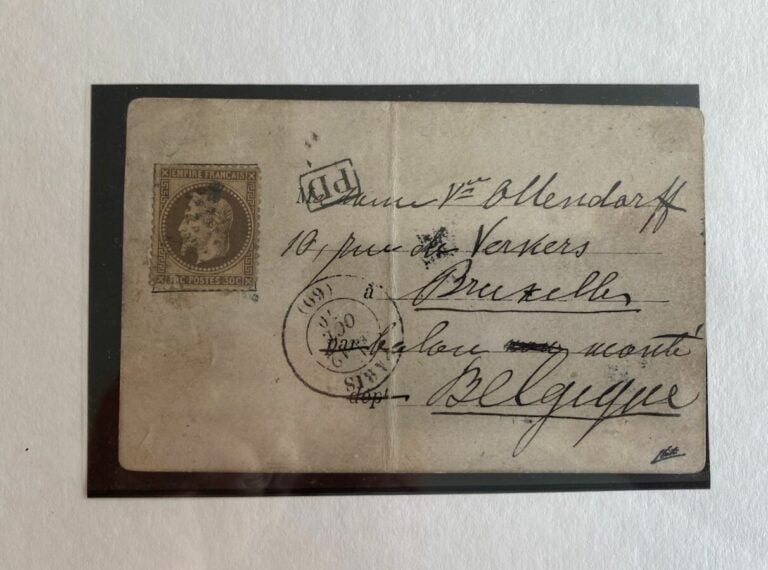 EMPIRE FRANÇAIS
POSTES 30C
PD
Madame Vve Ollendorff
19, rue de Verviers
à Bruxelles
par balon monté
dépt Belgique
PARIS
OCT
(60)